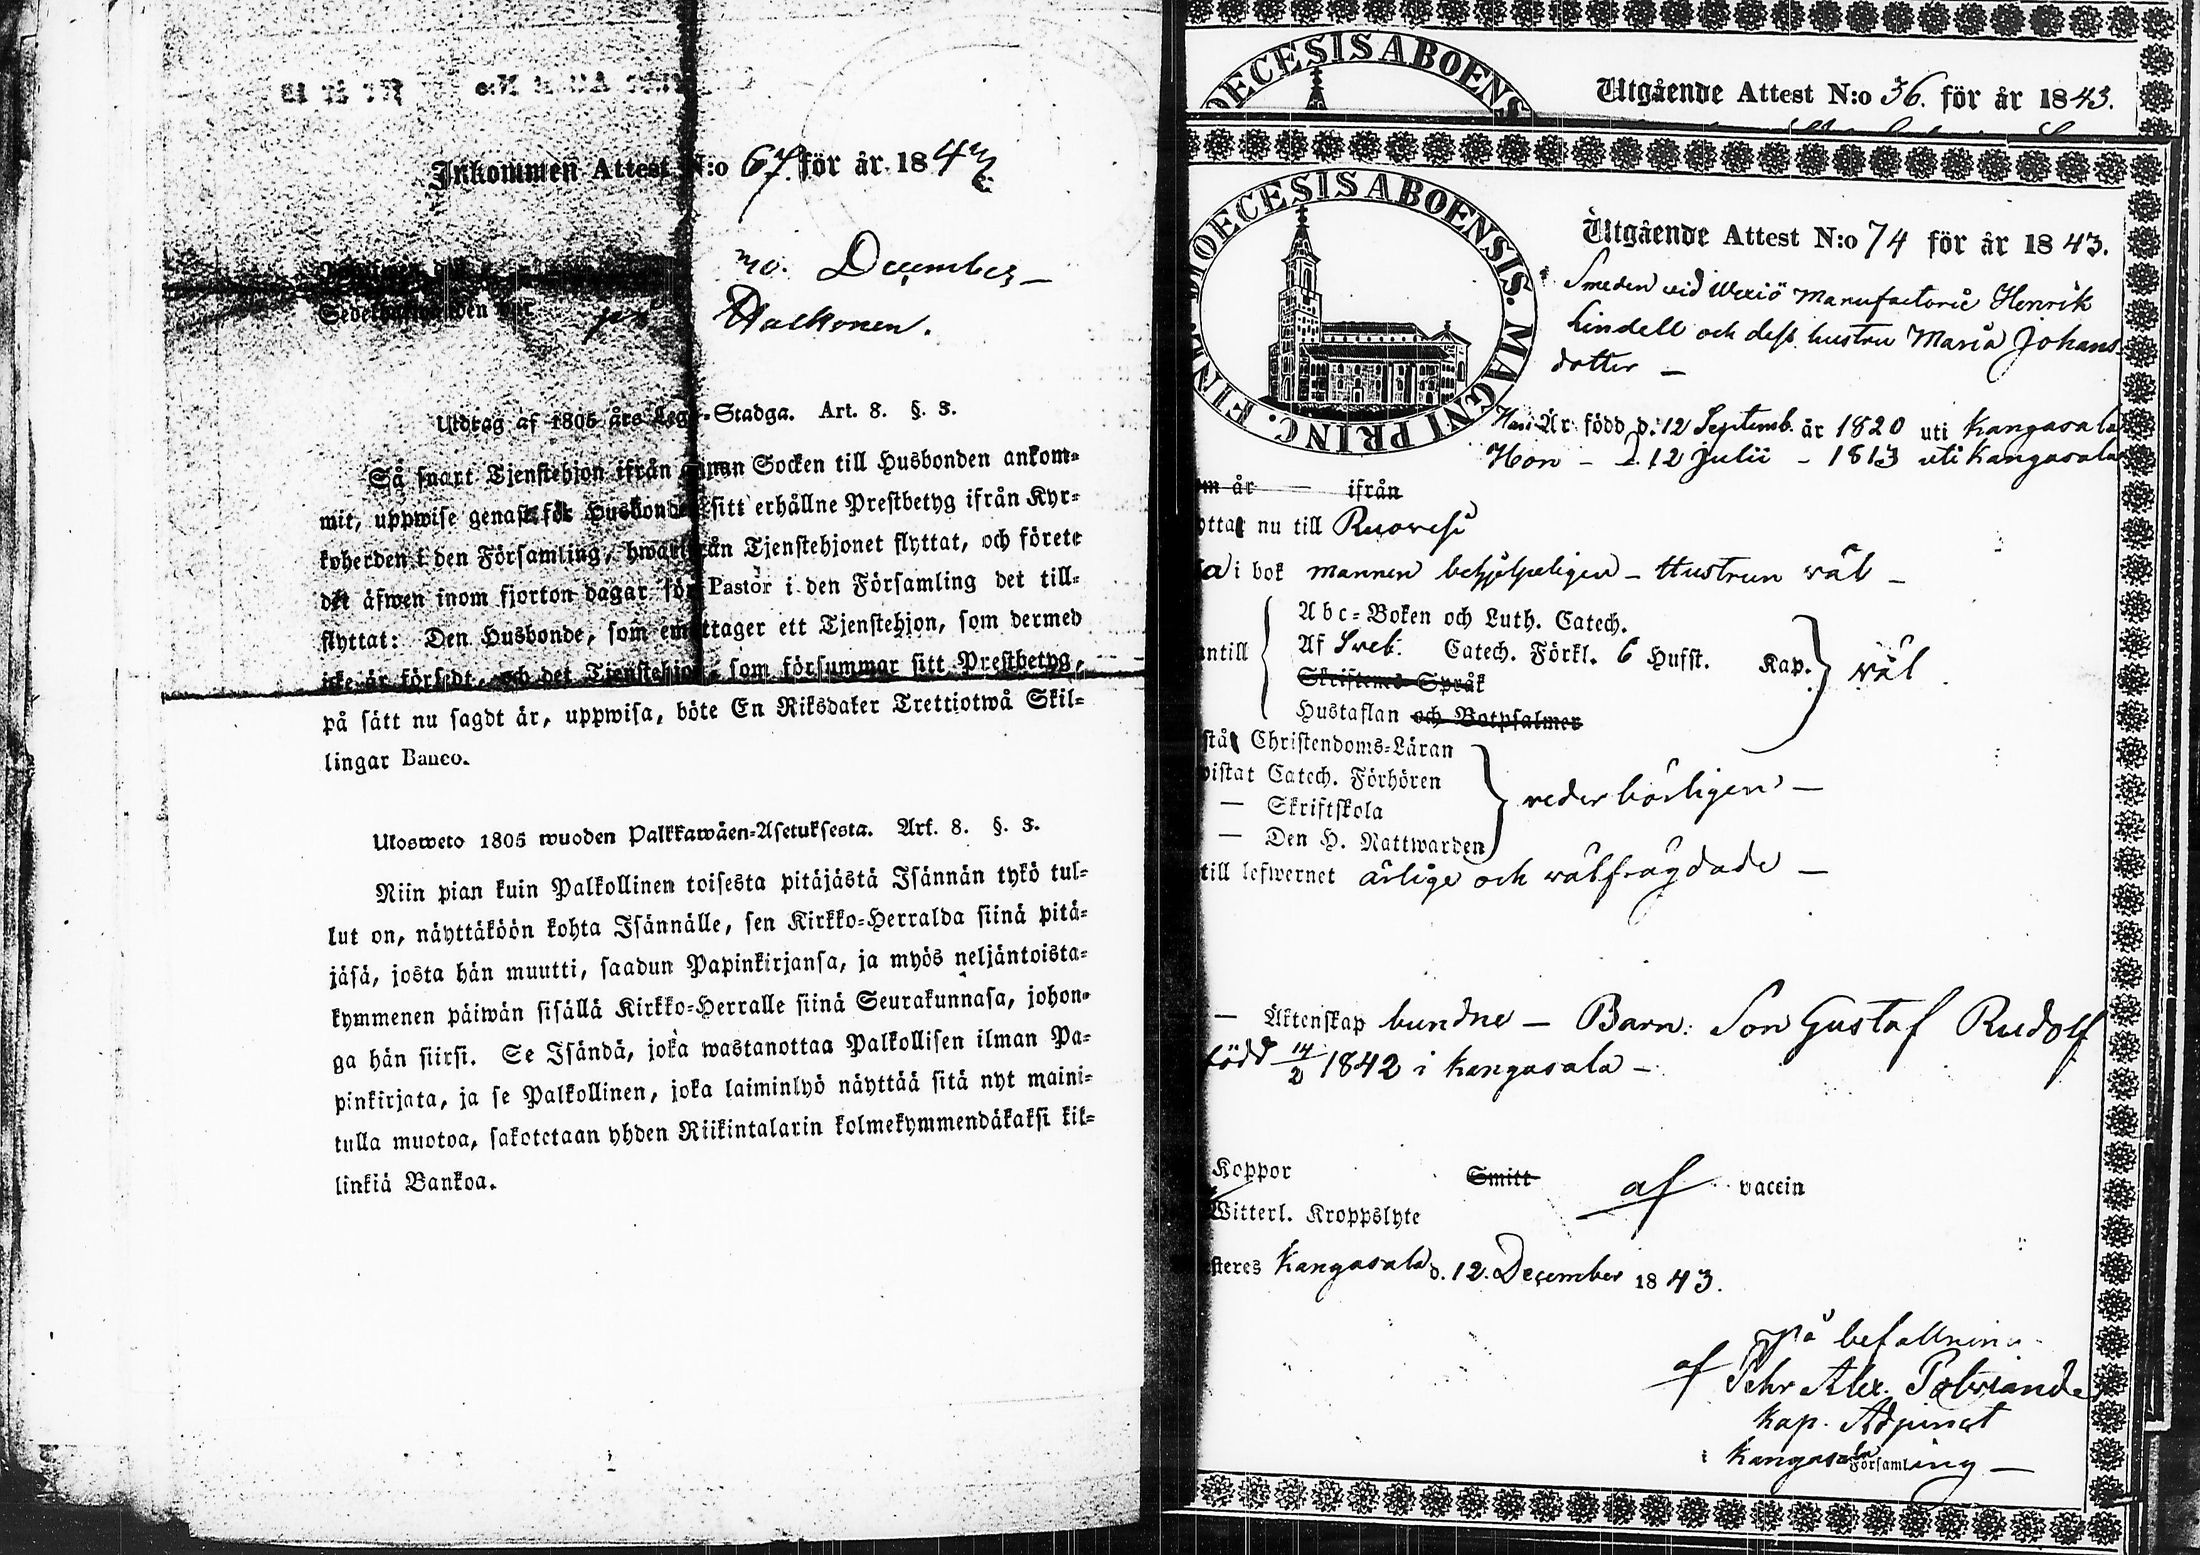 Inkommen Attest N:o 67. för år 1843
December
Palkonen.
Utdrag af 1805 års Lego-Stadga. Art. 8. §. 3.
Så snart Tjenstehjon ifrån annan Socken till Husbonden ankom-
mit, uppwise genast för Husbonden sitt erhållne Prestbetyg ifrån Kyr-
koherden i den Församling, hwarifrån Tjenstehjonet flyttat, och förete
det äfwen inom fjorton dagar för Pastor i den Församling det till-
flyttat: Den Husbonde, som emottager ett Tjenstehjon, som dermed
icke är försedt, och det Tjenstehjon, som försummar sitt Prestbetyg,
på sätt nu sagdt är, uppwisa, böte En Riksdaler Trettiotwå Skil-
lingar Banco.
Ulosweto 1805 wuoden Palkkawäen-Asetuksesta. Art. 8. §. 3.
Niin pian kuin Palkollinen toisesta pitäjästä Isännän tykö tul-
lut on, näyttäköön kohta Isännälle, sen Kirkko-Herralda siinä pitä-
jäsä, josta hän muutti, saadun Papinkirjansa, ja myös neljäntoista-
kymmenen päiwän sisällä Kirkko-Herralle siinä Seurakunnasa, johon-
ga hän siirsi. Se Isändä, joka wastanottaa Palkollisen ilman Pa-
pinkirjata, ja se Palkollinen, joka laiminlyö näyttää sitä nyt maini-
tulla muotoa, sakotetaan yhden Riikintalarin kolmekymmendäkaksi kil-
linkiä Bankoa.
DIOECESIS ABOENS
Utgående Attest N:o 36. för år 1843.
DIOECESIS ABOENSIS. MAGNI PRINC. FINL.
Utgående Attest N:o 74 för år 1843.
Smeden vid Wexiö Manufacturie Henrik
Lindell och dess hustru Maria Johans
dotter —
Han Är född d. 12 Septemb. år 1820 uti Kangasala
Hon — d. 12 Julii — 1813 uti Kangasala
om år — ifrån
yttat nu till Ruovesi
a i bok mannen behjelpeligen — Hustrun väl —
Abc-Boken och Luth. Catech.
antill Af Sveb. Catech. Förkl. 6 Hufst. Kap. väl
Skriftenes Språk
Hustaflan och Botpsalmer
står Christendoms-Läran
vistat Catech. Förhören vederbörligen —
— Skriftskola
— Den H. Nattwarden
till lefwernet ärlige och välfrägdade —
— Äktenskap bundne — Barn: Son Gustaf Rudolf
född 14/2 1842 i Kangasala —
Koppor Smitt af vaccin
Witterl. Kroppslyte
steres Kangasala d. 12. December 1843.
På befallning
af
Kap. Adjunct
i Kangasala Församling —